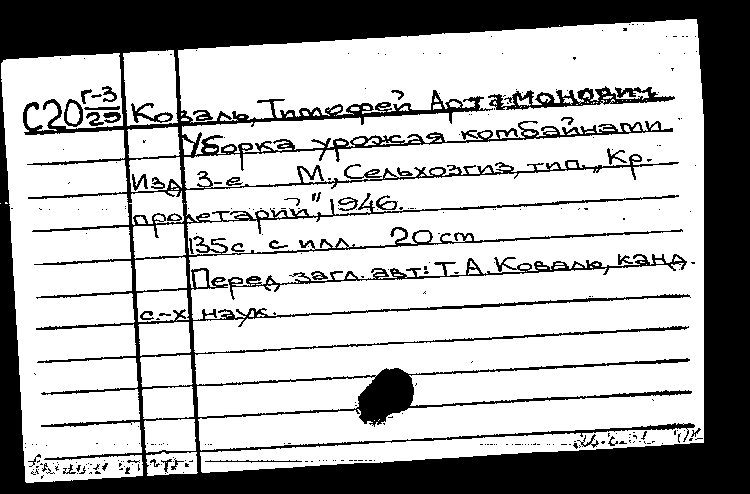 С20 Г-3/25 Коваль, Тимофей Артамонович
Уборка урожая комбайнами.
Изд. 3-е. М., Сельхозгиз, тип. „Кр.
пролетарий", 1946.
135 с. с илл. 20 cm
Перед загл. авт.: Т. А. Коваль, канд.
с.-х. наук.